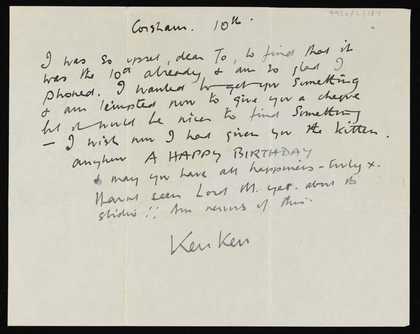 Corsham. 10th.
I was so upset, dear Jo, to find that it
was the 10th already, & am so glad I
phoned. I wanted to get you something
& am tempted now to give you a cheque
but it would be nicer to find something
- I wish now I had given you the kitten.
anyhow A HAPPY BIRTHDAY
& may you have all happiness - truly x.
Havent seen Lord M. yet. about the
studio!! Am nervous of this.
Ken Ken